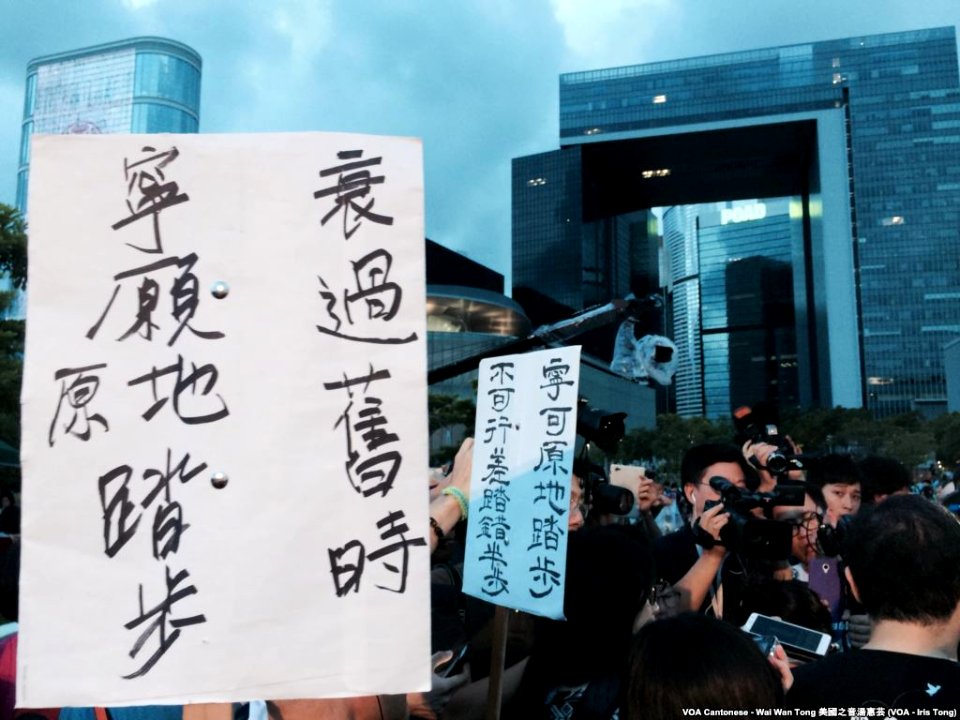 衰過舊時
寧願地踏步
原
寧可原地踏步
不可行差踏錯半步
VOA Cantonese - Wai Wan Tong 美國之音湯惠芸 (VOA - Iris Tong)